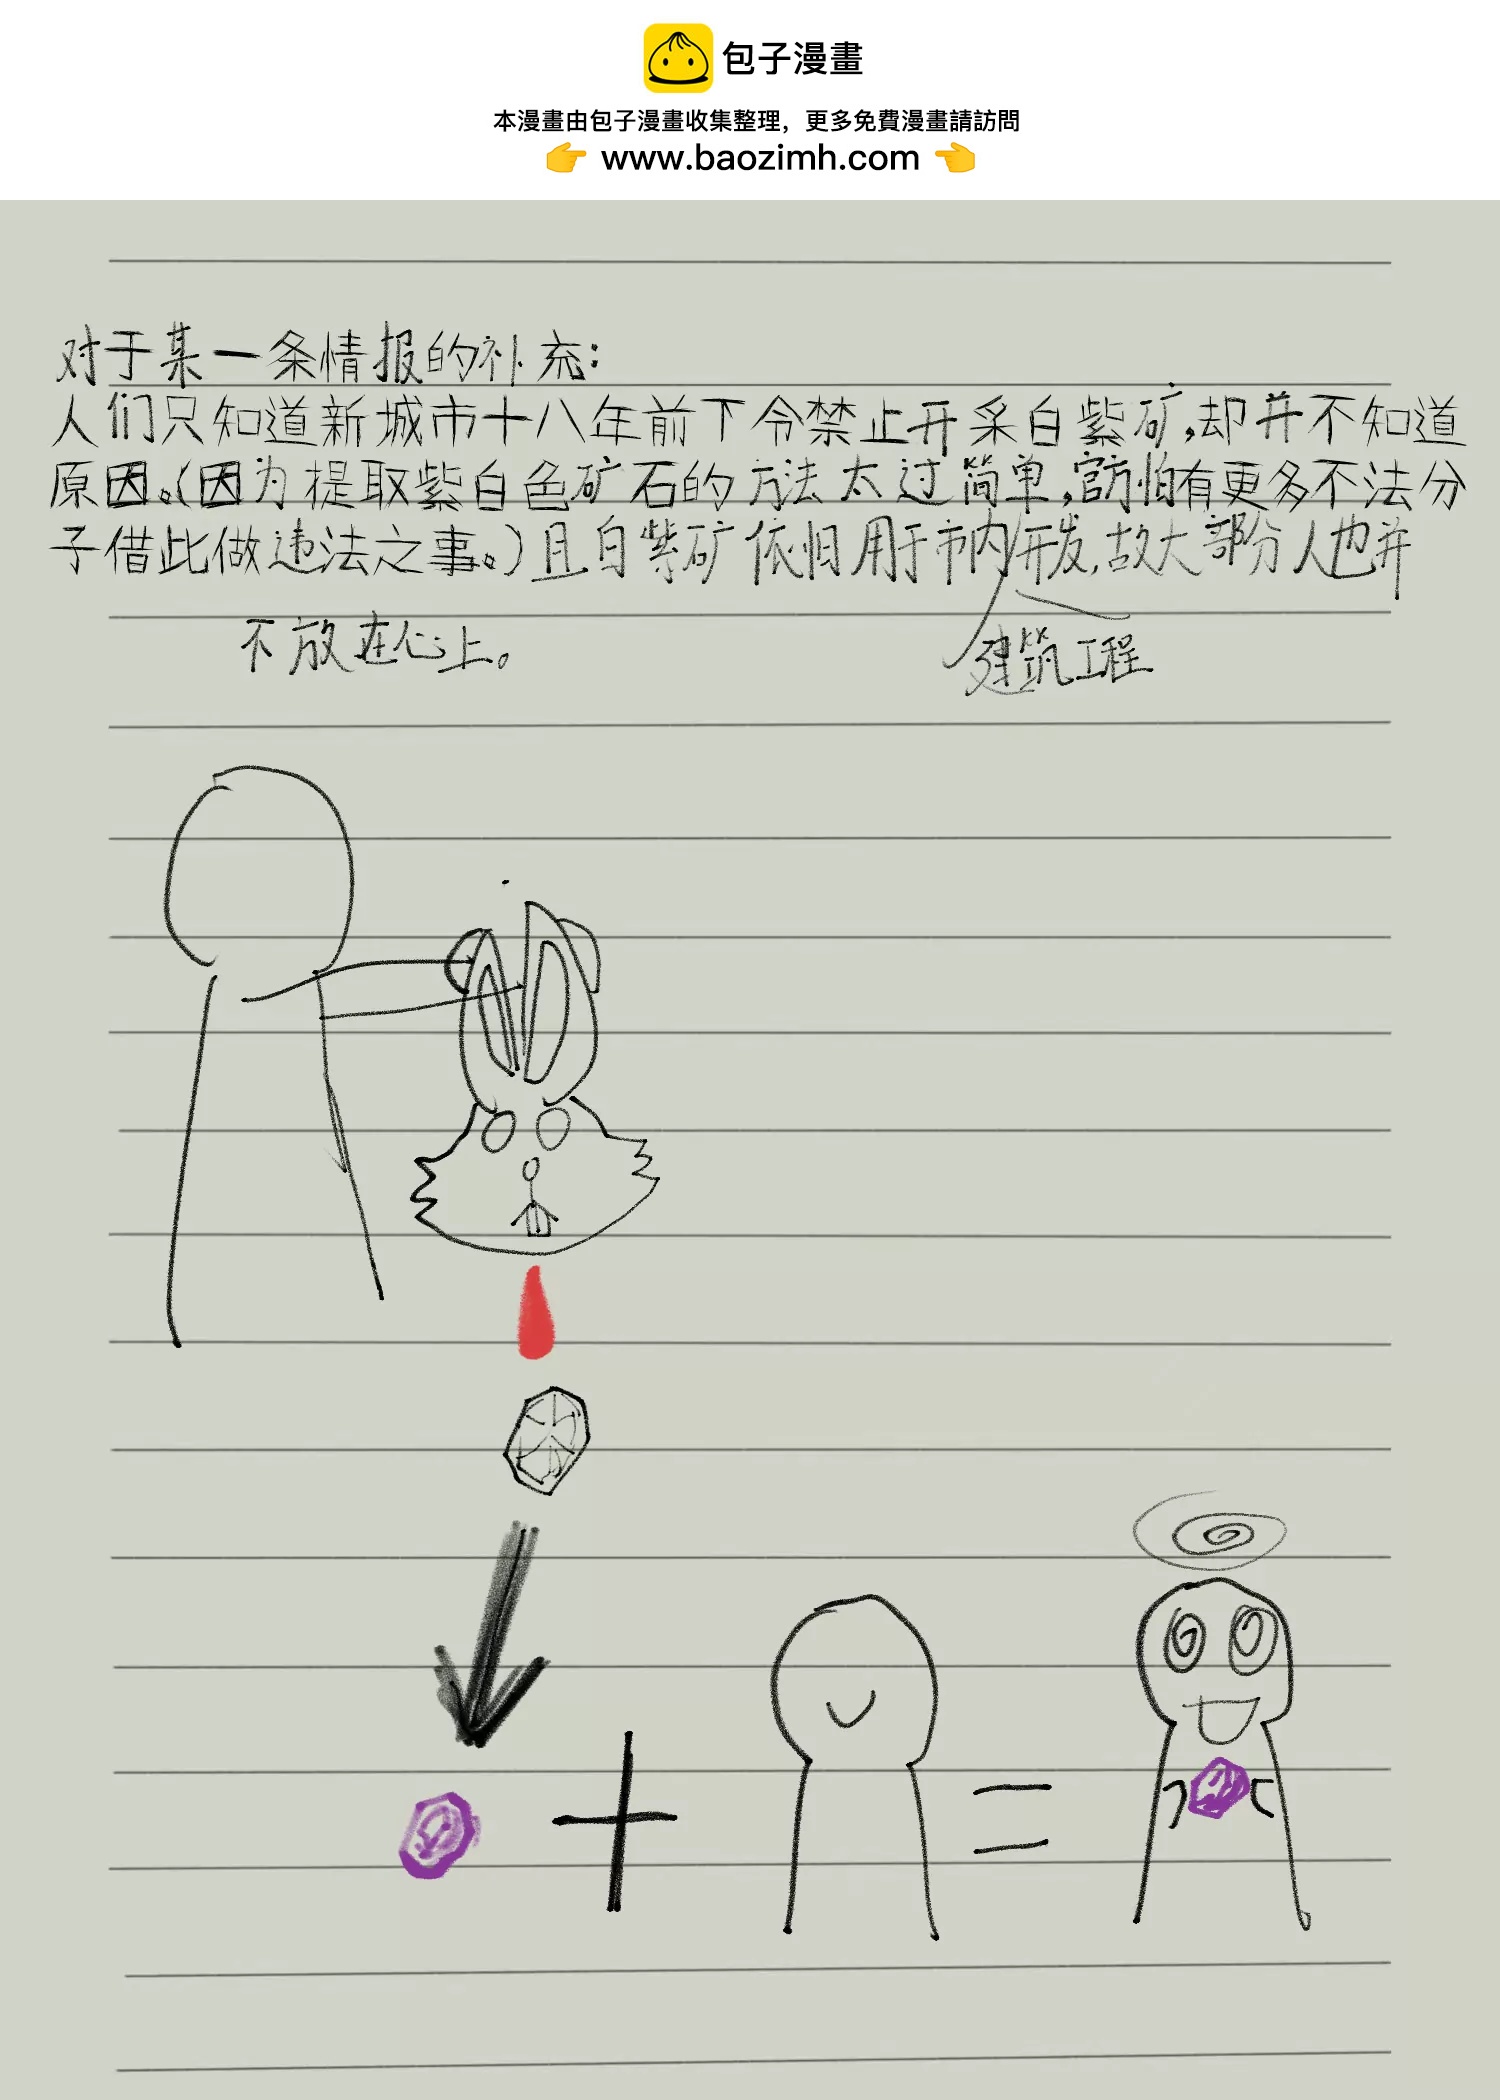 包子漫畫
本漫畫由包子漫畫收集整理，更多免費漫畫請訪問
👉 www.baozimh.com 👈
对于某一条情报的补充：
人们只知道新城市十八年前下令禁止开采白紫矿，却并不知道
原因。（因为提取紫白色矿石的方法太过简单，官方怕有更多不法分
子借此做违法之事。）且白紫矿依旧用于市内开发，故大部分人也并
建筑工程
不放在心上。